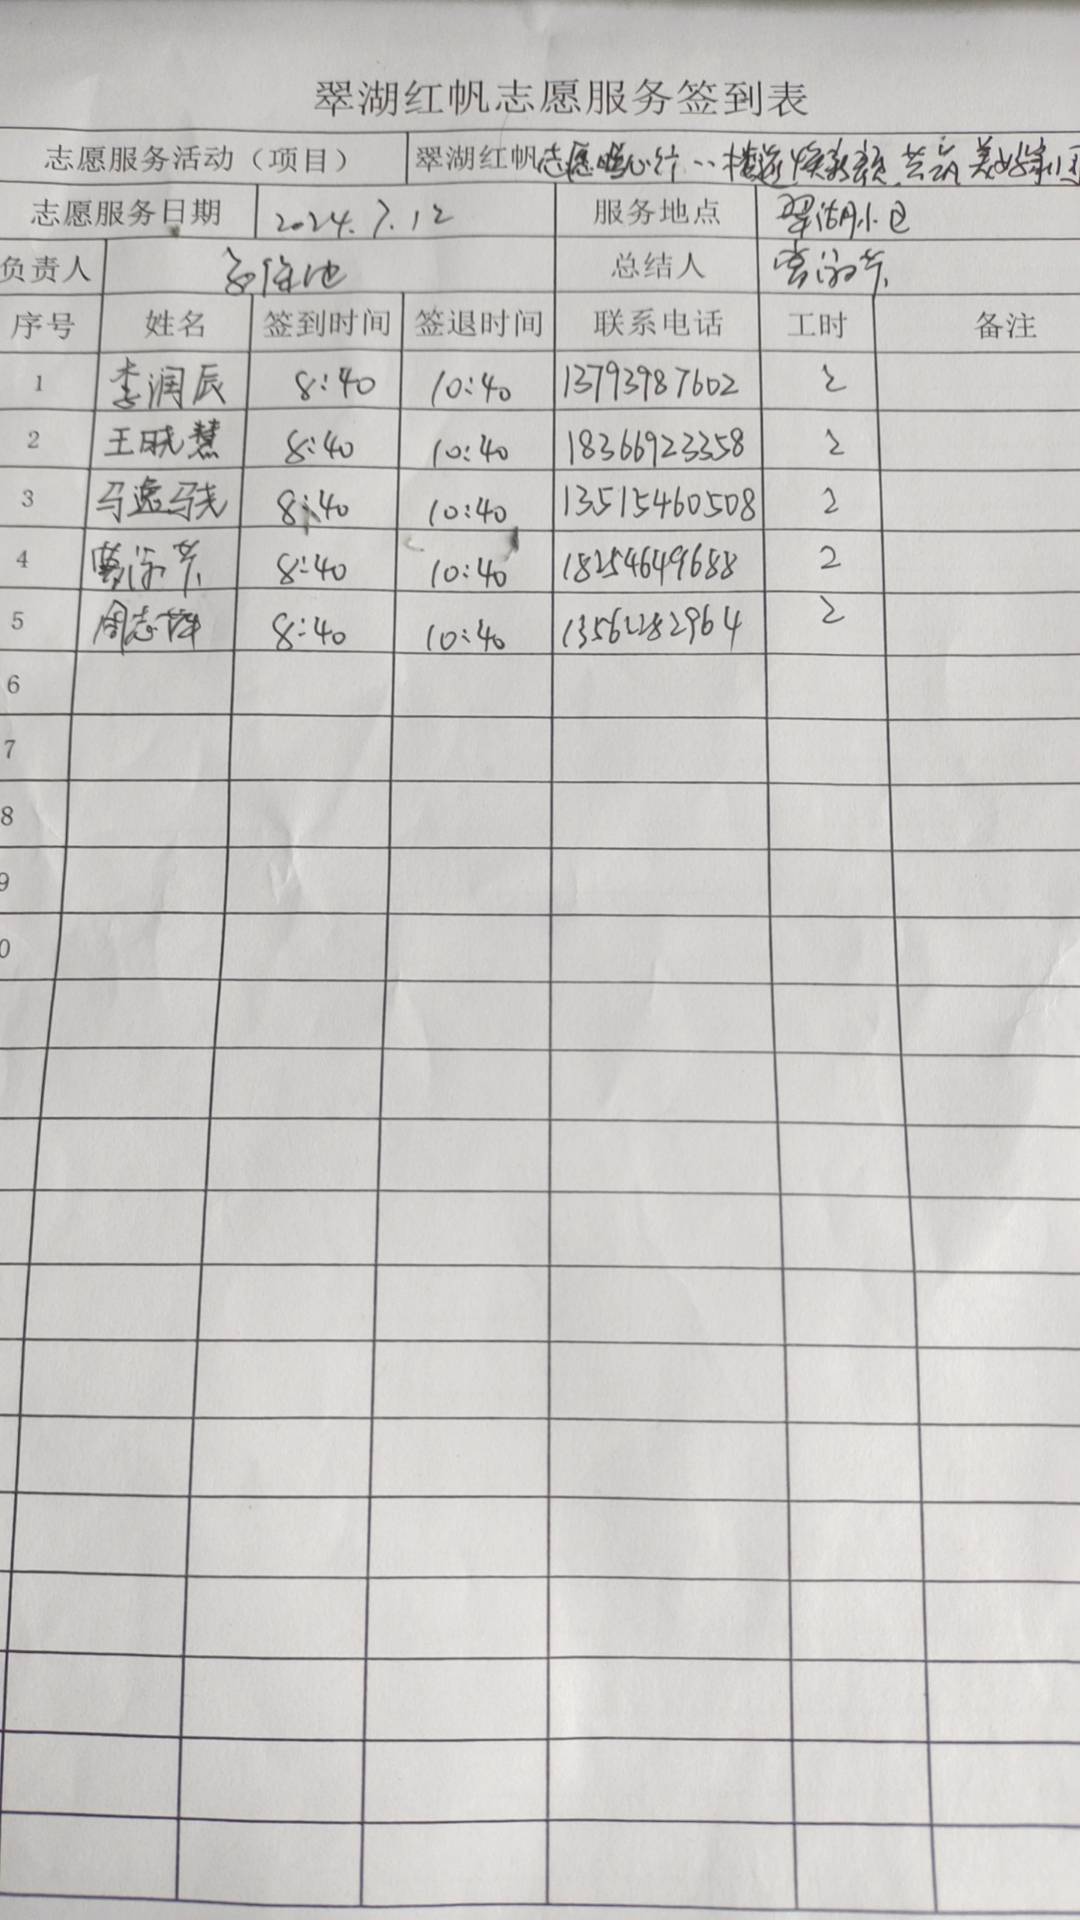 翠湖红帆志愿服务签到表
志愿服务活动（项目） 翠湖红帆志愿暖心行
志愿服务日期 2024.7.12 服务地点 翠湖小区
负责人 总结人
序号 姓名 签到时间 签退时间 联系电话 工时 备注
1 李润辰 8:40 10:40 13793987602 2
2 王晓慧 8:40 10:40 18366923358 2
3 马逸骁 8:40 10:40 13515460508 2
4 8:40 10:40 18254649688 2
5 周志萍 8:40 10:40 13562282964 2
6
7
8
9
0